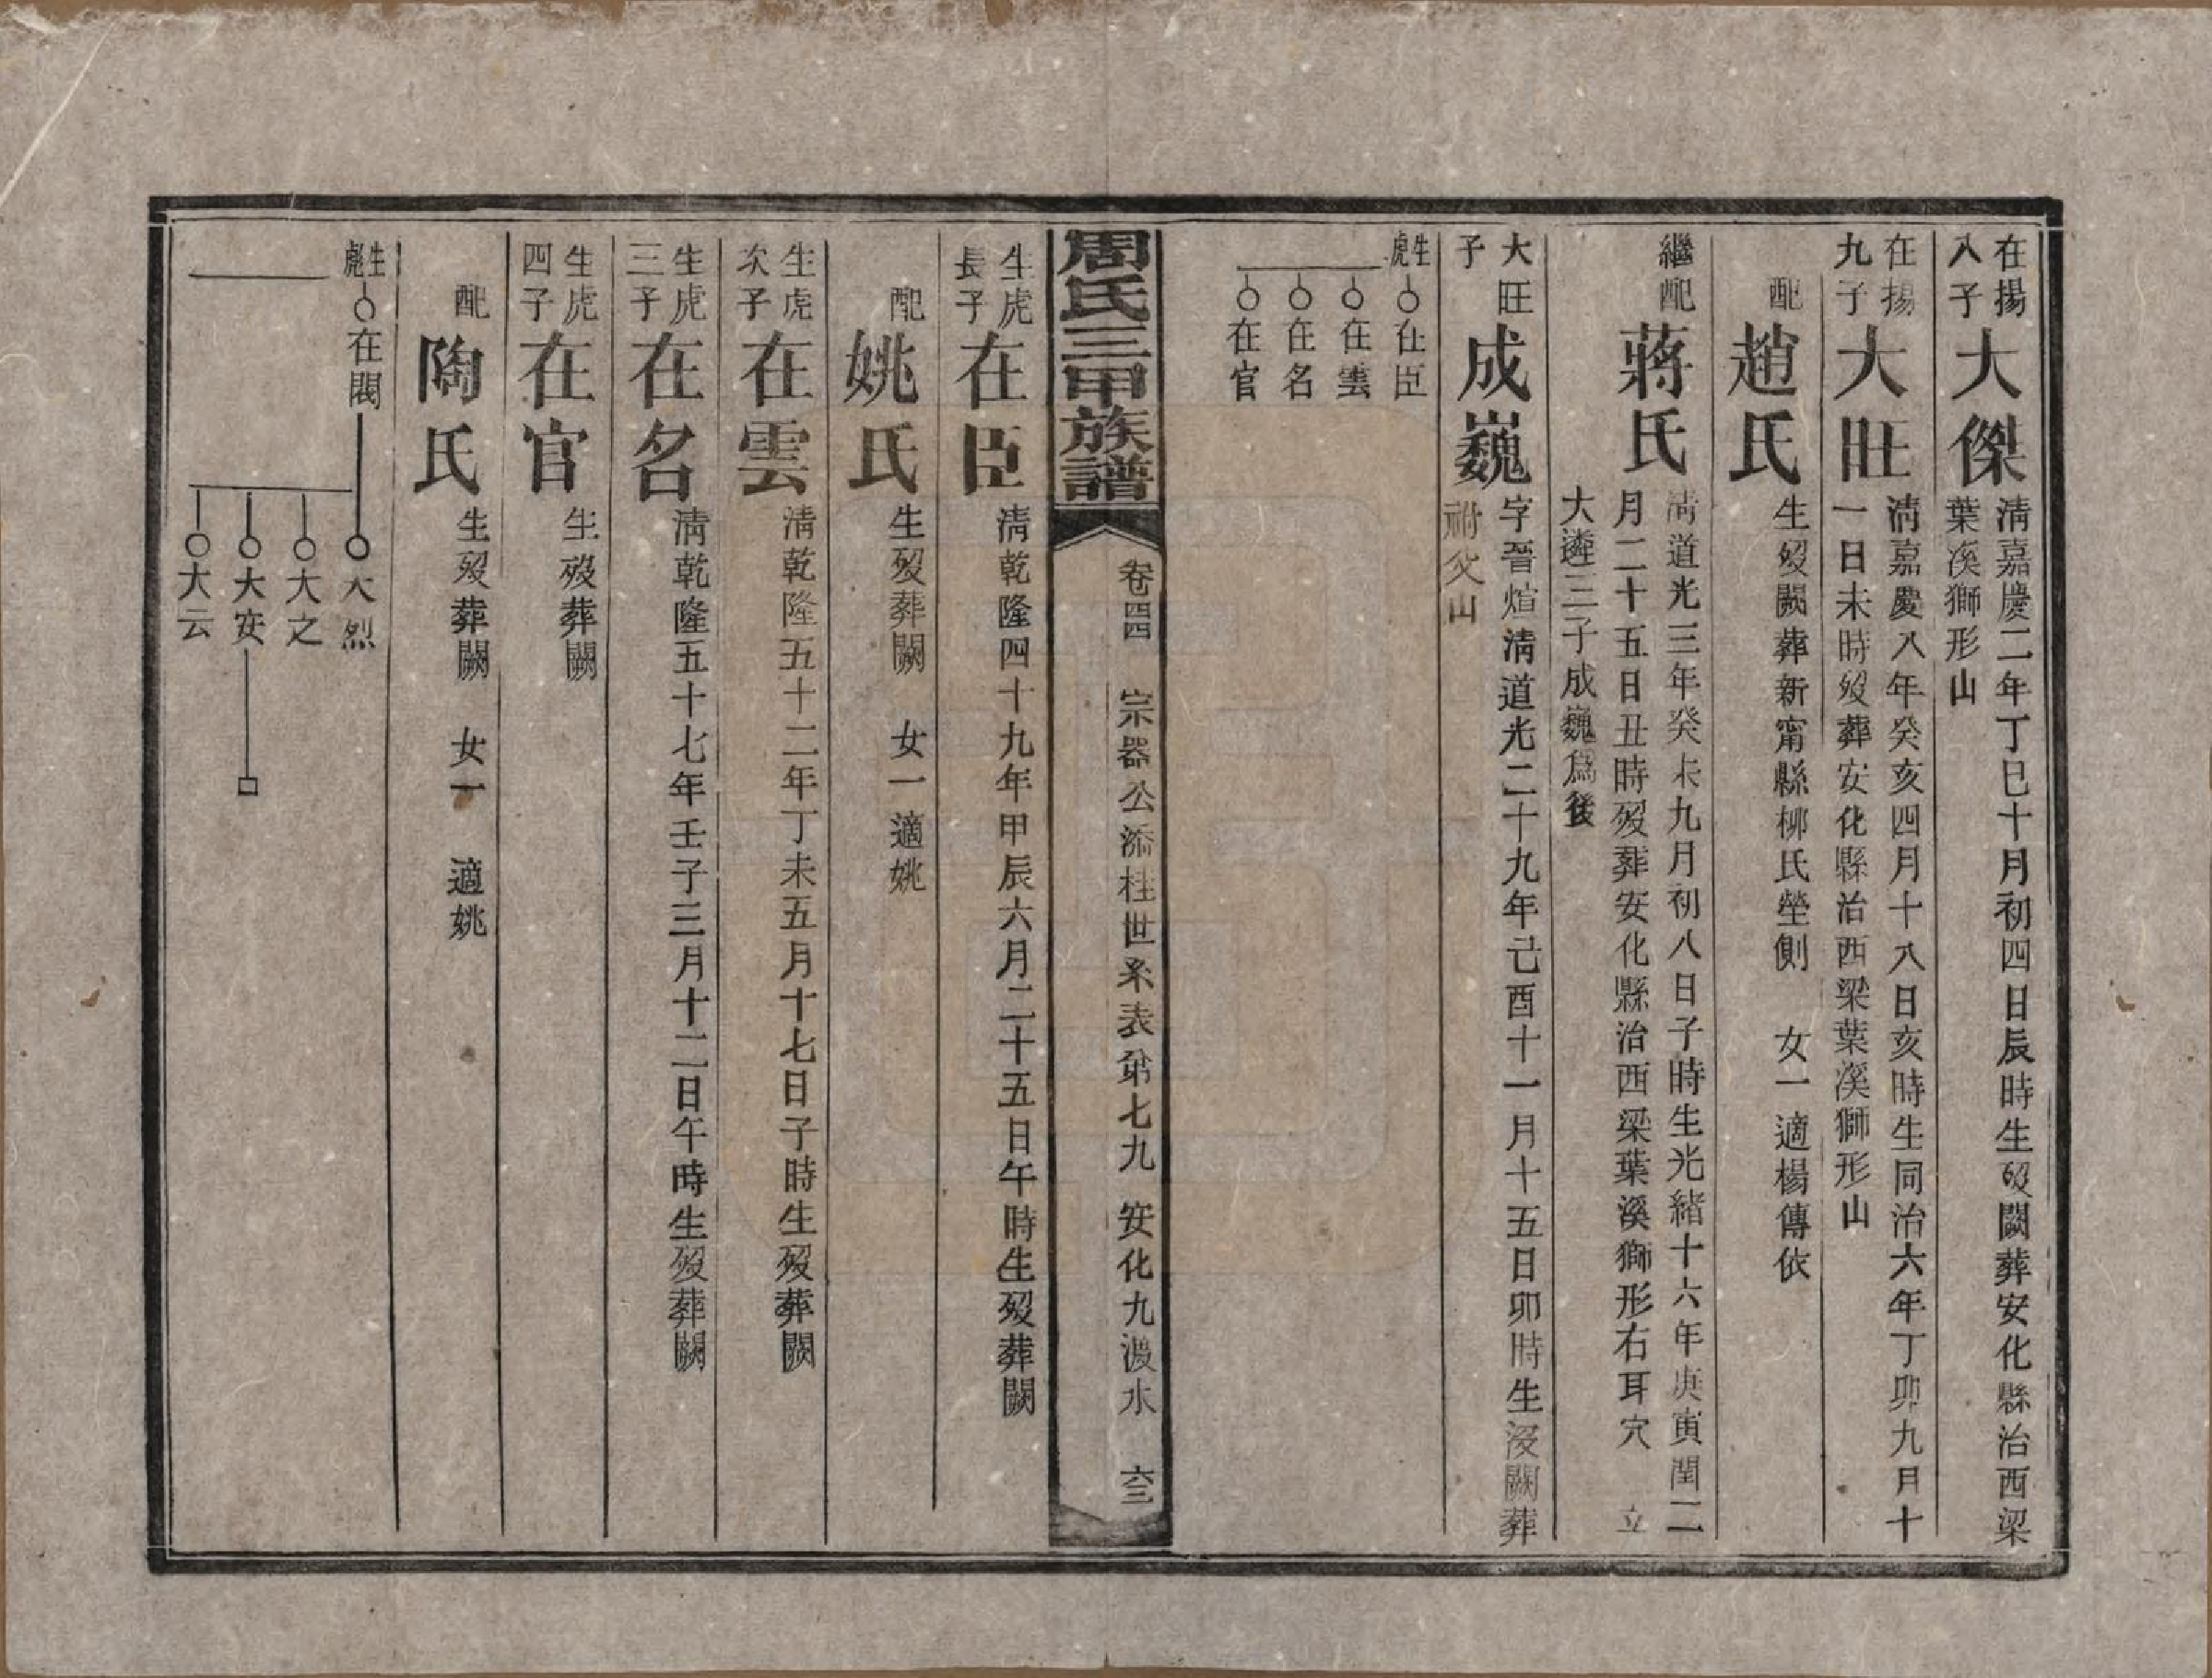 在揚八子
大傑
清嘉慶二年丁巳十月初四日辰時生歿闕葬安化縣治西梁
葉溪獅形山
在揚九子
大旺
清嘉慶八年癸亥四月十八日亥時生同治六年丁卯九月十
一日未時歿葬安化縣治西梁葉溪獅形山
配
趙氏
生歿闕葬新甯縣柳氏塋側 女一適楊傳依
繼配
蔣氏
清道光三年癸未九月初八日子時生光緒十六年庚寅閏二
月二十五日丑時歿葬安化縣治西梁葉溪獅形右耳穴 立
大遴三子成巍爲後
大旺子
成巍
字晉煊清道光二十九年己酉十一月十五日卯時生沒闕葬
祔父山
生虎
在臣
在雲
在名
在官
周氏三甲族譜
卷四四 宗器公添桂世系表第七九 安化九渡水 六三
生虎長子
在臣
清乾隆四十九年甲辰六月二十五日午時生歿葬闕
配
姚氏
生歿葬闕 女一適姚
生虎次子
在雲
清乾隆五十二年丁未五月十七日子時生歿葬闕
生虎三子
在名
清乾隆五十七年壬子三月十二日午時生歿葬闕
生虎四子
在官
生歿葬闕
配
陶氏
生歿葬闕 女一 適姚
生彪
在閥
大烈
大之
大安
大云